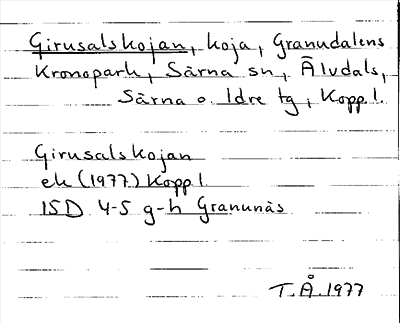 Girusalskojan, koja, Granudalens
Kronopark, Särna sn, Älvdals,
Särna o. Idre tg, Kopp l.
Girusalskojan
ek (1977) Kopp l.
15D 4-5 g-h Granunäs
T.Å. 1977